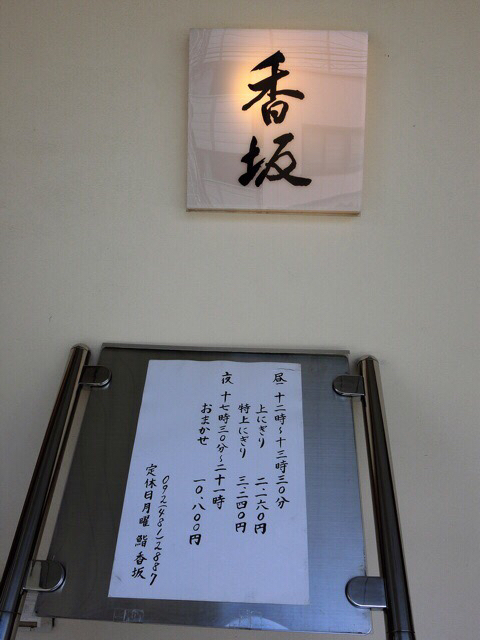 香坂
昼 十二時〜十三時三〇分
上にぎり 二.一六〇円
特上にぎり 三.二四〇円
夜 十七時三〇分〜二十一時
おまかせ 一〇.八〇〇円
092(481)2887
定休日月曜 鮨 香坂